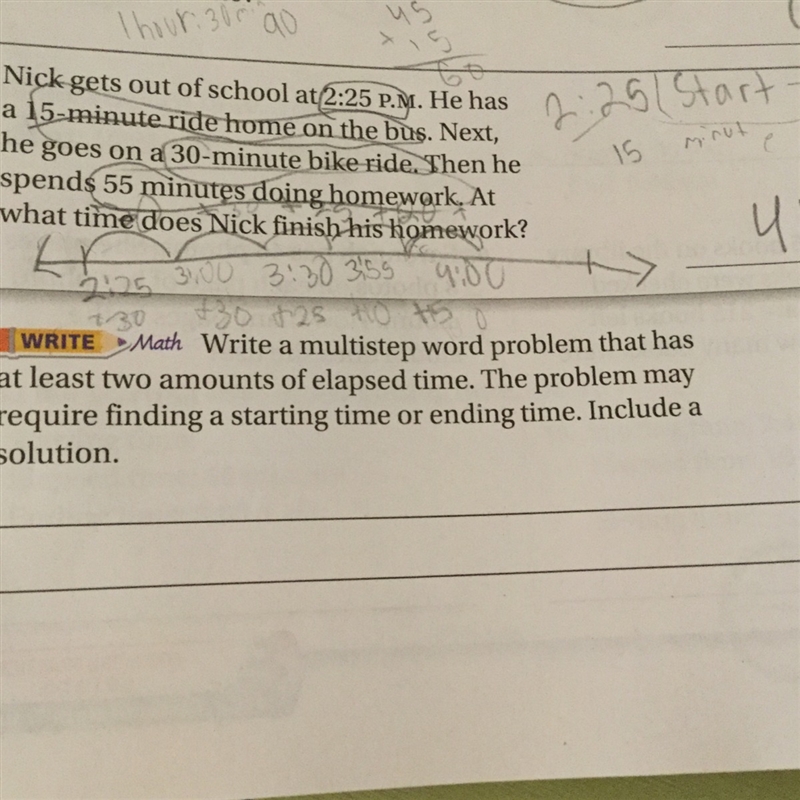 1 hour: 30 90
45
+ 15
60
Nick gets out of school at 2:25 P.M. He has
a 15-minute ride home on the bus. Next,
he goes on a 30-minute bike ride. Then he
spends 55 minutes doing homework. At
what time does Nick finish his homework?
2:25 (Start -
15 minute
4
2:25 3:00 3:30 3:55 4:00
+30 +30 +25 +10 +5 0
WRITE Math Write a multistep word problem that has
at least two amounts of elapsed time. The problem may
require finding a starting time or ending time. Include a
solution.